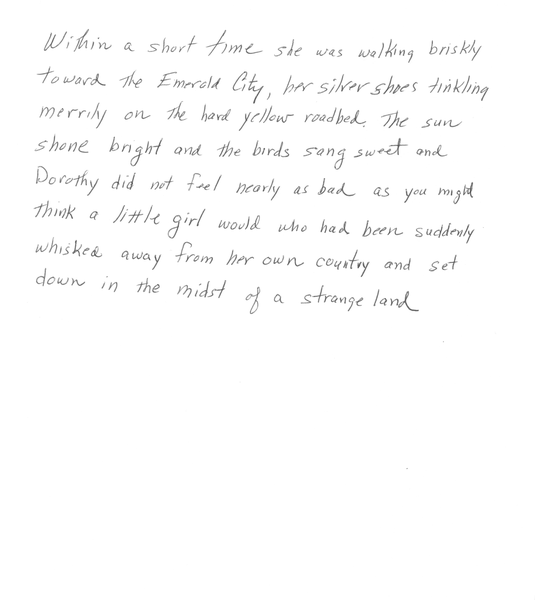 Within a short time she was walking briskly
toward the Emerald City, her silver shoes tinkling
merrily on the hard yellow roadbed. The sun
shone bright and the birds sang sweet and
Dorothy did not feel nearly as bad as you might
think a little girl would who had been suddenly
whisked away from her own country and set
down in the midst of a strange land